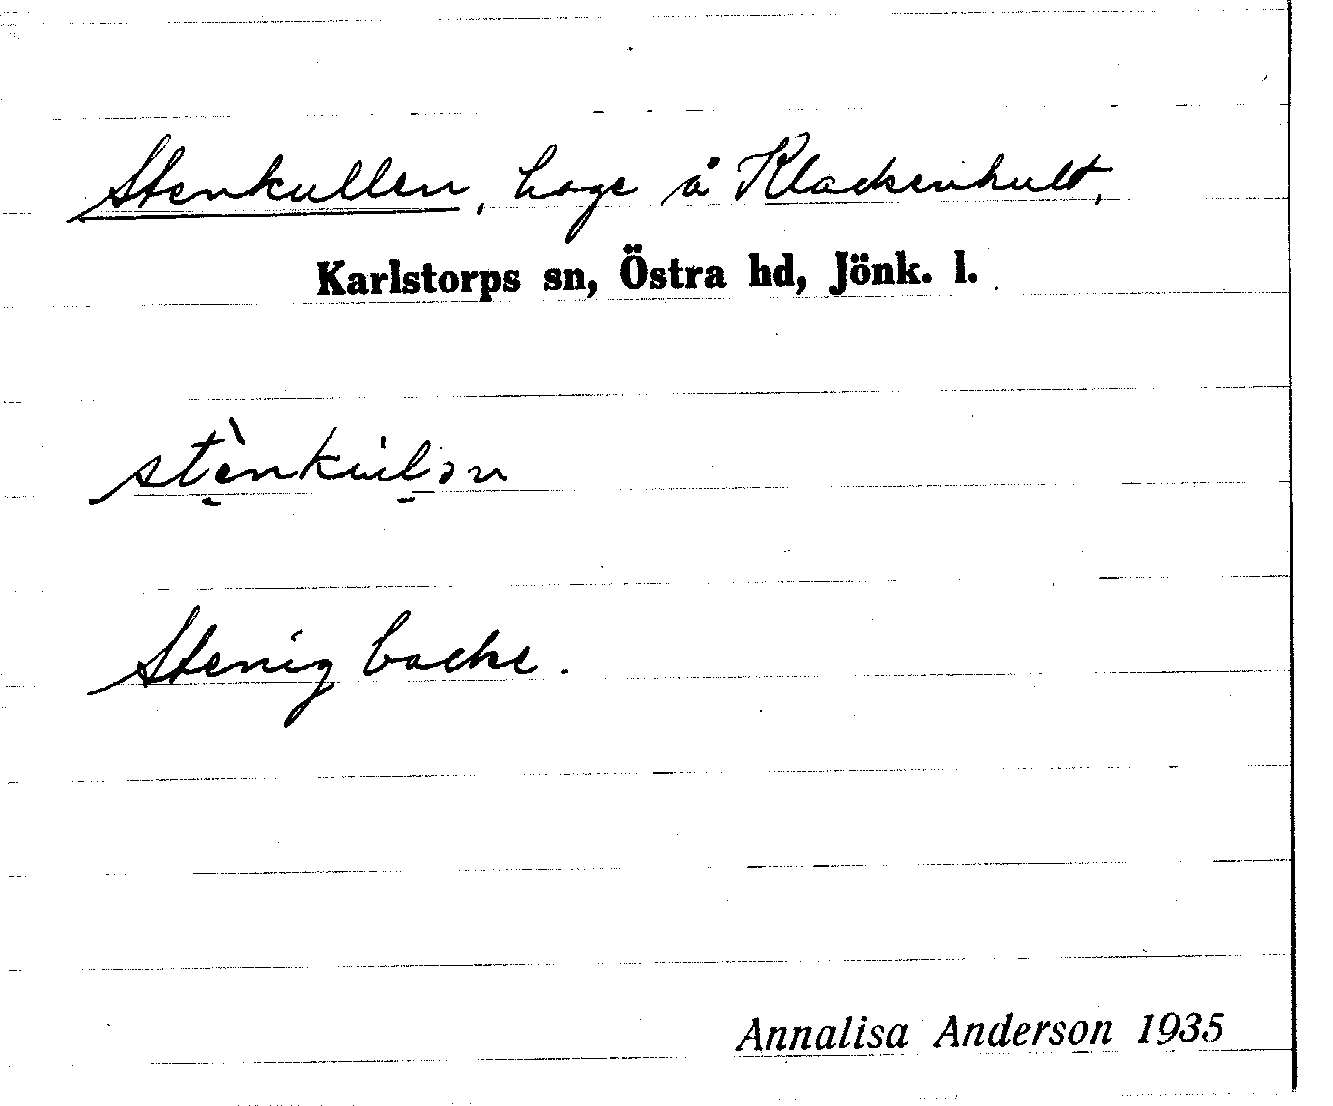 Stenkullen, hage å Klackenhult,
Karlstorps sn, Östra hd, Jönk. l.
stènku̇lən
Stenig backe.
Annalisa Anderson 1935